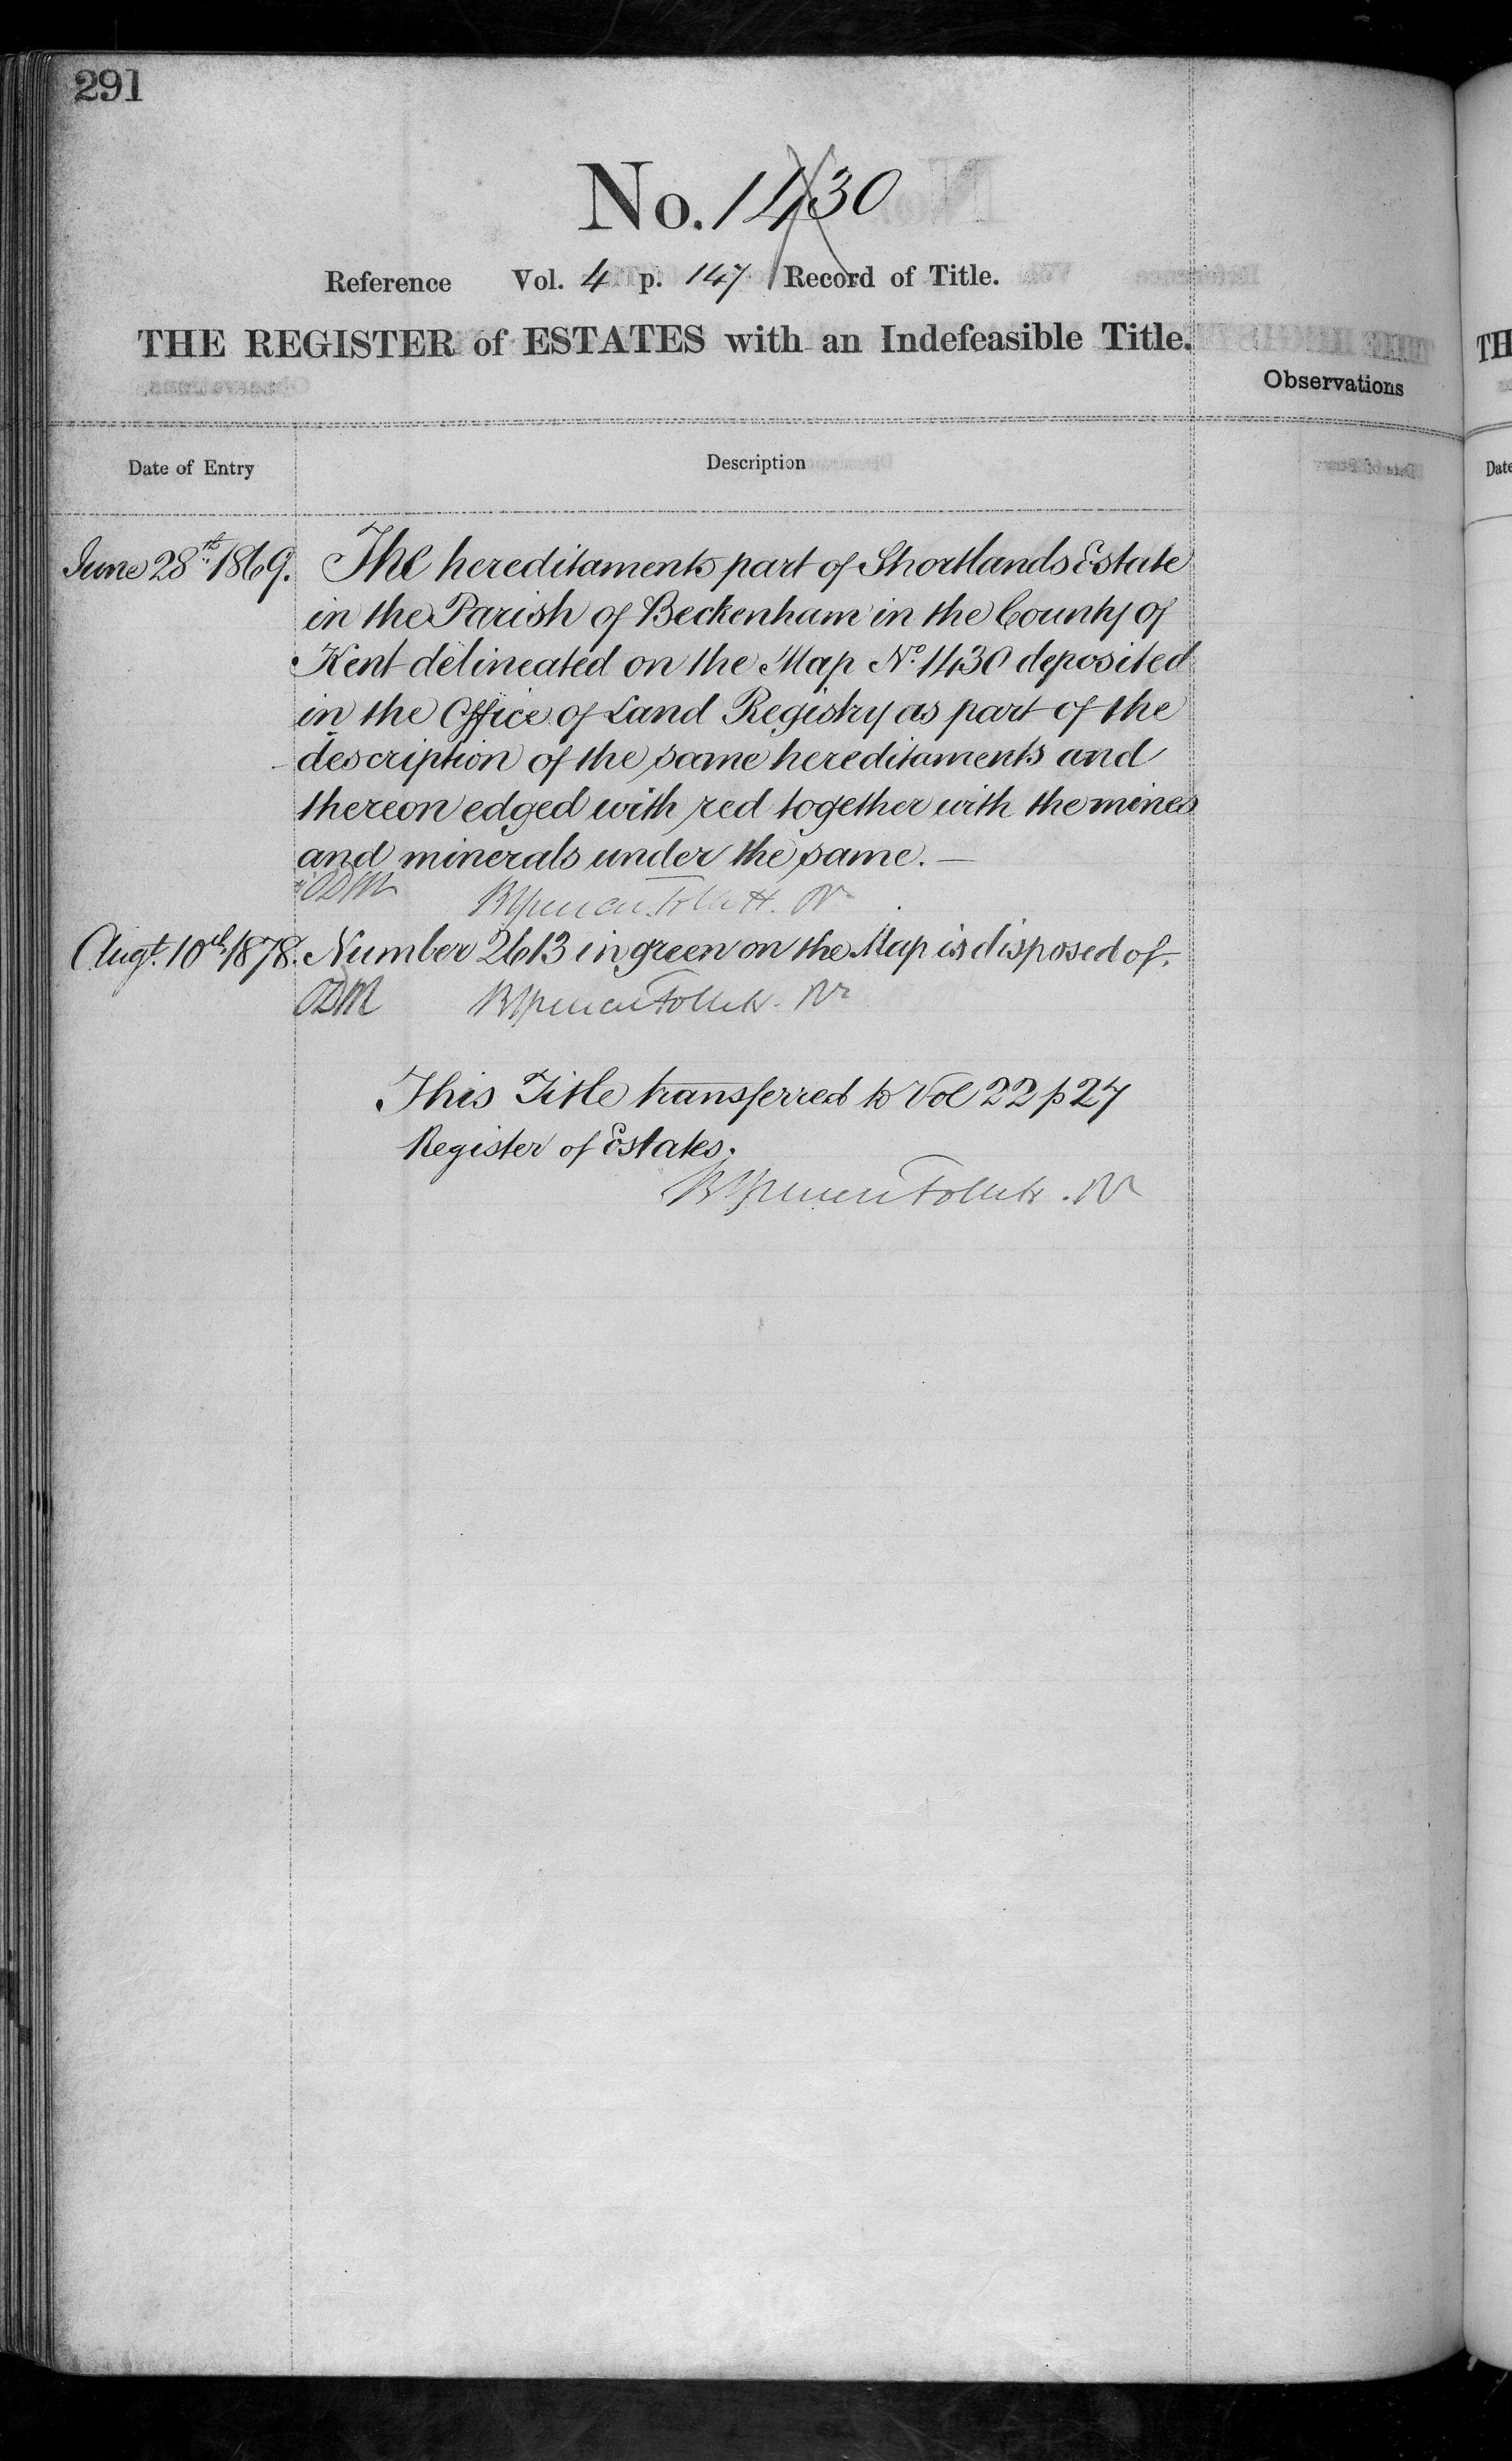 291
No. 1430
Reference Vol. 4 p. 147 Record of Title.
THE REGISTER of ESTATES with an Indefeasible Title.
Observations
Date of Entry
Description
June 28th 1869. The hereditaments part of Shortlands Estate
in the Parish of Beckenham in the County of
Kent delineated on the Map No. 1430 deposited
in the Office of Land Registry as part of the
description of the same hereditaments and
thereon edged with red together with the mines
and minerals under the same. —
ODM Brent Spencer Follett. Rr
Augt. 10th 1878. Number 2613 in green on the Map is disposed of.
ODM
This Title transferred to Vol 22 p 27
Register of Estates.